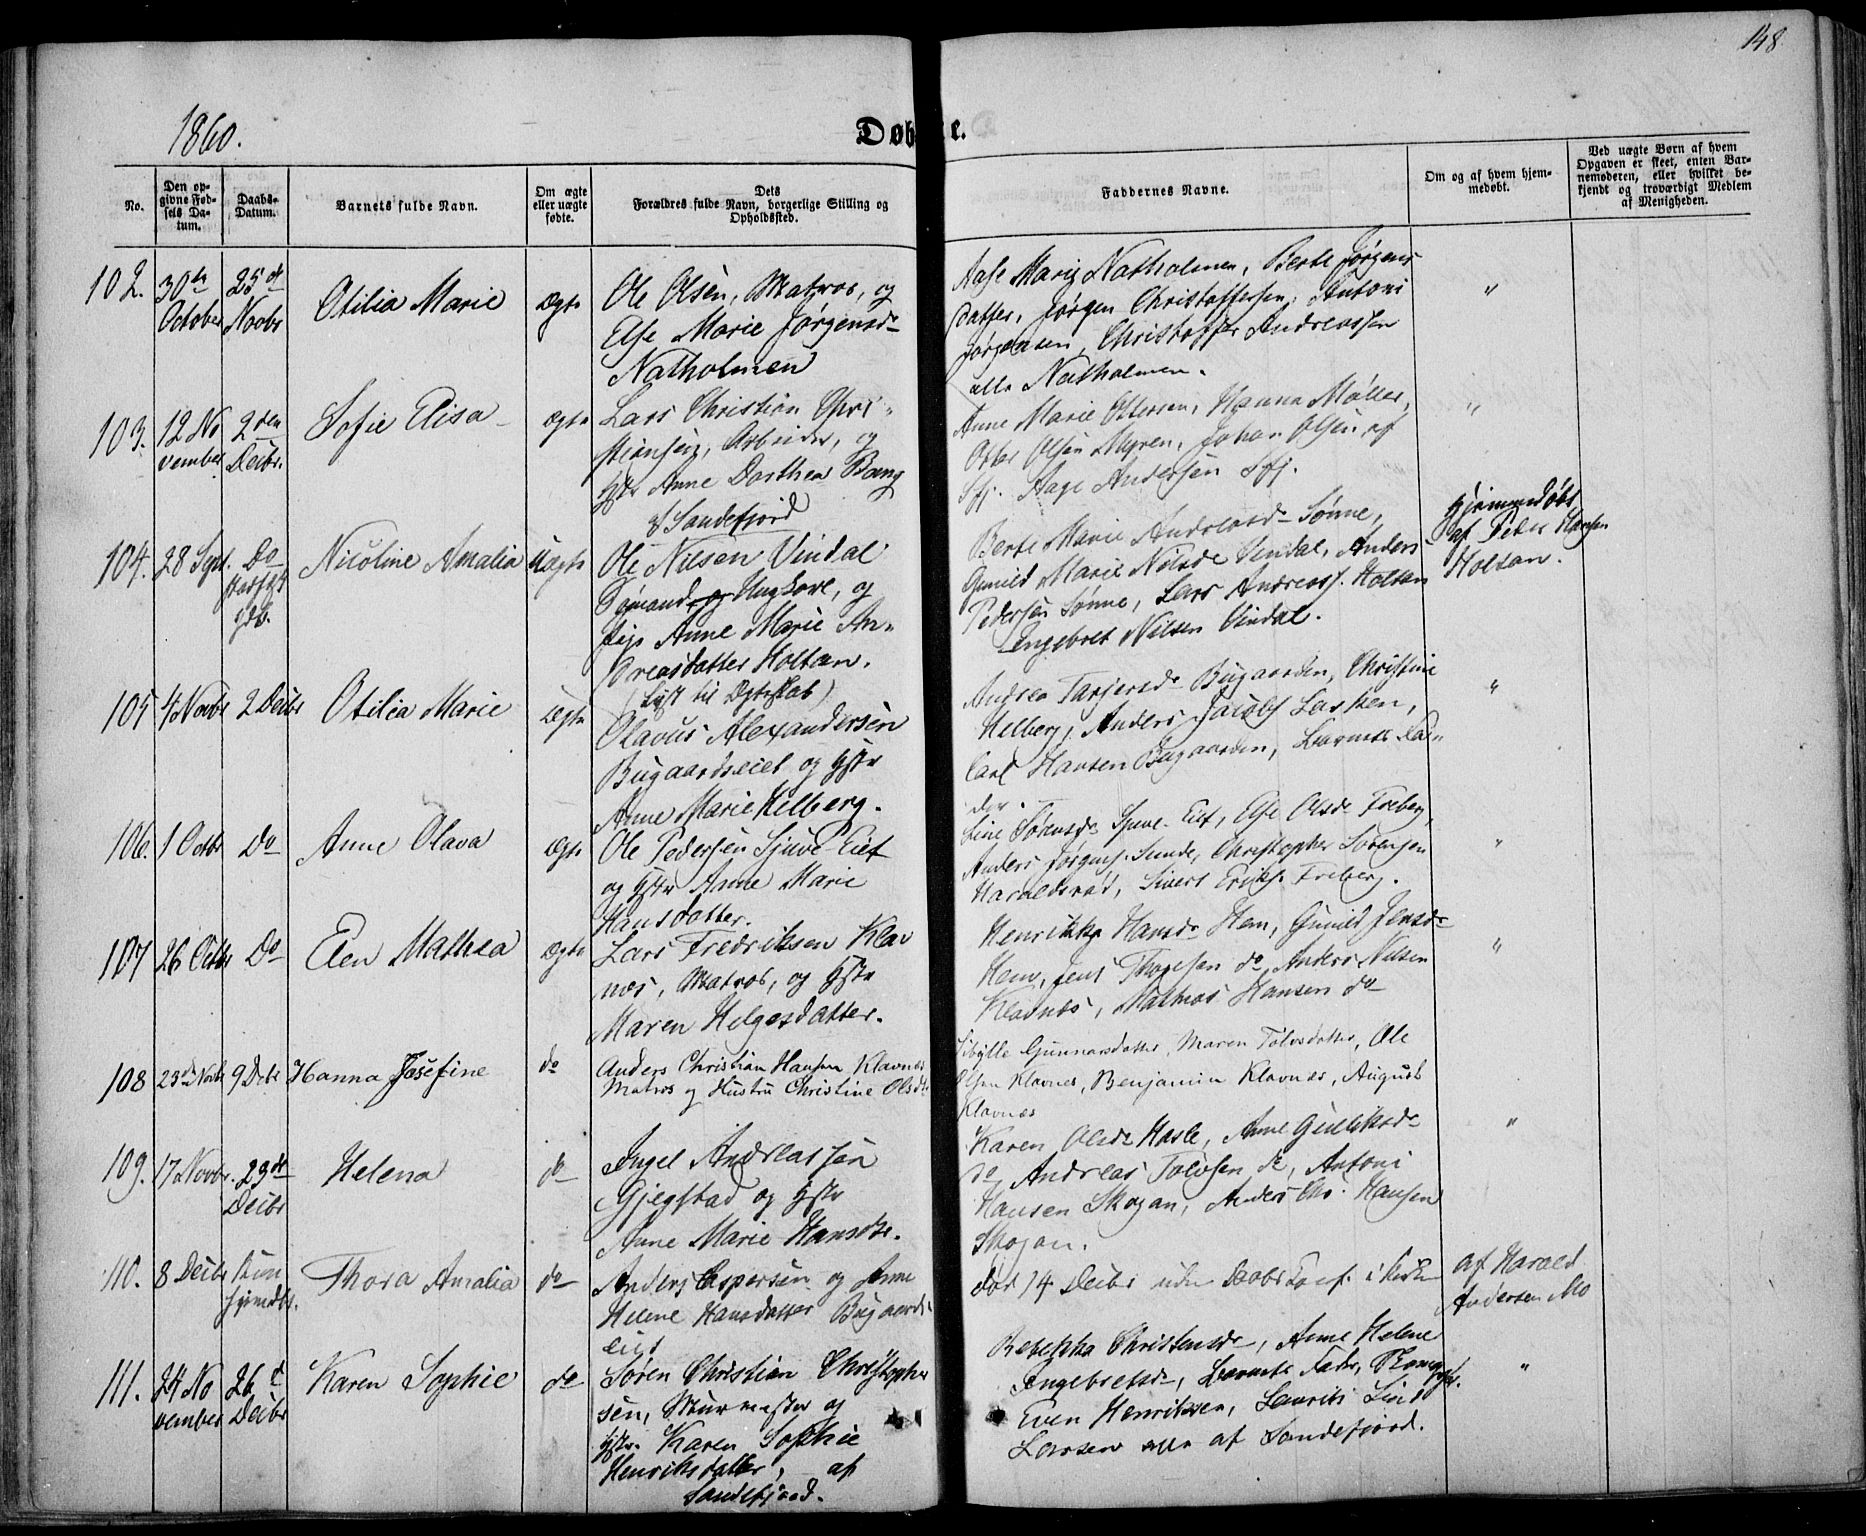 148
1860.
Døbte.
No.
Den opgivne Fødsels Datum.
Daabs-Datum.
Barnets fulde Navn.
Om ægte eller uægte fødte.
Dets Forældres fulde Navn, borgerlige Stilling og Opholdssted.
Faddernes Navne.
Om og af hvem hjemmedøbt.
Ved uægte Børn af hvem Opgaven er skeet, enten Barnemoderen, eller hvilket bekjendt og troværdigt Medlem af Menigheden.
102. 30te October 25de Novbr Otilia Marie ægte
Ole Olsen, Matros, og
Else Marie Jørgensd.
Natholmen
Aase Marie Natholmen, Berte Jørgens
datter, Jørgen Christoffersen, Antoni
Jørgensen, Christoffer Andreassen
alle Natholmen.
"
103. 12 November 2den Decbr. Sofie Elisa ægte
Lars Christian Chri-
stiansen, Arbeider, og
Hstr Anne Dorthea Bang
af Sandefjord
Anne Marie Ottersen, Hanna Møller,
Otter Olsen Myren, Johan Olsen af
Sfj. Aage Andersen Sfj.
"
104. 28 Sept. Do Nicoline Amalia Uægte
Ole Nilsen Vindal
Sømand og Ungkarl, og
Pige Anne Marie An-
dreasdatter Holtan.
(Lyst til Ægteskab)
Berte Marie Andreasd. Sønne,
Gunild Marie Nilsd. Vindal, Anders
Pedersen Sønne, Lars Andreass. Holtan
Engebret Nilsen Vindal.
Hjemmedøbt
af Peder Hansen
Holtan.
105 4 Novbr 2 Decbr Otilia Marie ægte
Olavus Alexandersen
Bugaardseiet og Hstr
Anne Marie Helberg.
Andrea Tarjersd. Bugaarden, Christine
Helberg, Anders Jacobs Lasken,
Carl Hansen Bugaarden, Barnets Fa-
der.
"
106. 1 Octbr Do Anne Olava ægte
Ole Pedersen Sjuve Eiet
og Hstr Anne Marie
Hansdatter.
Line Sørensd. Sjuve-Eiet, Else Olsd. Freberg,
Anders Jørgens. Sunde, Christopher Sørensen
Haraldsrød, Sivert Eriks. Freberg.
"
107 26 Octbr Do Elen Mathea ægte
Lars Fredriksen Klav
nes, Matros, og Hstr
Maren Helgesdatter.
Henrikka Hansd. Hem, Gunild Jensd.
Hem, Jens Thoresen do, Anders Nilsen
Klavnes, Mathias Hansen do
"
108 23de Novbr 9 Decbr Hanna Josefine do
Anders Christian Hansen Klavnes
Matros og Hustru Christine Olsdtr
Sibylle Gunnarsdatter, Maren Tolvsdatter, Ole
Olsen Klavnes, Benjamin Klavnes, August
Klavnes
109. 17 Novbr. 23de Decbr Helena do
Ingel Andreassen
Gjegstad og Hstr
Anne Marie Hansdtr.
Karen Olsd. Hasle, Anne Gulliksd.
do, Andreas Tolvsen do, Antoni
Hansen Skogan, Anders Chr. Hansen
Skogan.
"
110. 8 Decbr Kun hjemdbt. Thora Amalia do
Anders Espersen og Anne
Helene Hansdatter Bugaards-
eiet
død 14 Decbr uden Daabs Conf. i Kirken
af Harald
Andersen Mo
111. 24 November 26d Decbr Karen Sophie do
Søren Christian Christopher
sen, Murmester og
Hstr. Karen Sophie
Henriksdatter, af
Sandefjord.
Rebekka Christensd., Anne Helene
Engebretsd., Barnets Fader,
Even Henriksen, Laurits Lind
Larsen alle af Sandefjord.
"